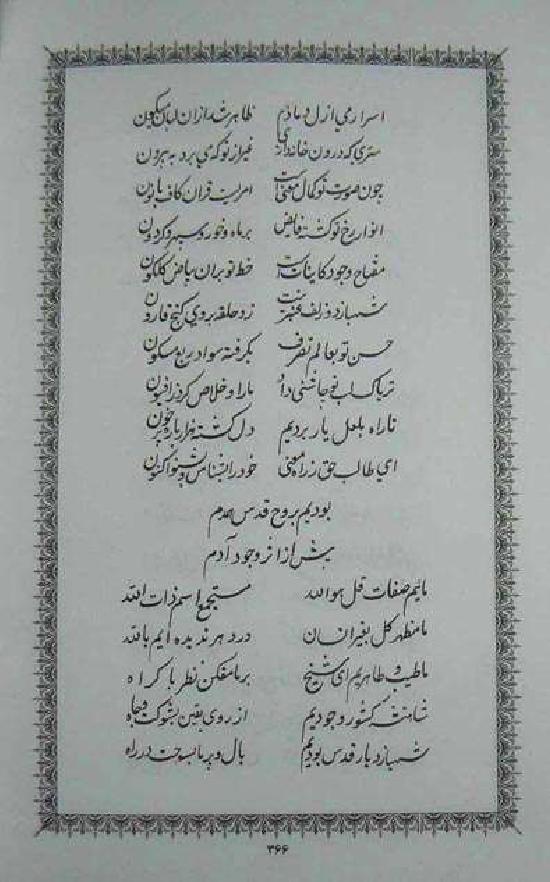 اسرار می ازل دمادم ظاهر شد از ان لبان میگون
سری که درون خانه داری غیر از تو کی برد به بیرون
چون صورت تو کمال معنی است
انوار رخ تو گشته فایض بر ماه و خور و سپهر و گردون
مفتاح وجود کاینات است خط تو بران بیاض گلگون
شهباز دو زلف عنبرینت زد حلقه بروی گنج قارون
حسن تو بعالم تصرف بگرفته سواد ربع مسکون
تریاک لب تو چاشنی داد ما را و خلاص کرد ز افیون
تا راه بلعل یار بردیم دل گشته هزار بار چون
ای طالب حق ز راه معنی خود را بشناس و بشنو اکنون
بودیم بروح قدس همدم
پیش از اثر وجود آدم
مائیم صفات قل هو الله مستجمع اسم ذات الله
ما مظهر کل بغیر انسان در دهر ندیده ایم بالله
ما طیب و طاهریم ای شیخ بر ما مفکن نظر باکراه
شاهنشه کشور وجودیم از روی یقین بشوکت و جاه
شهباز دیار قدس بودیم بال و پر ما بسوخت در راه
۳۶۶